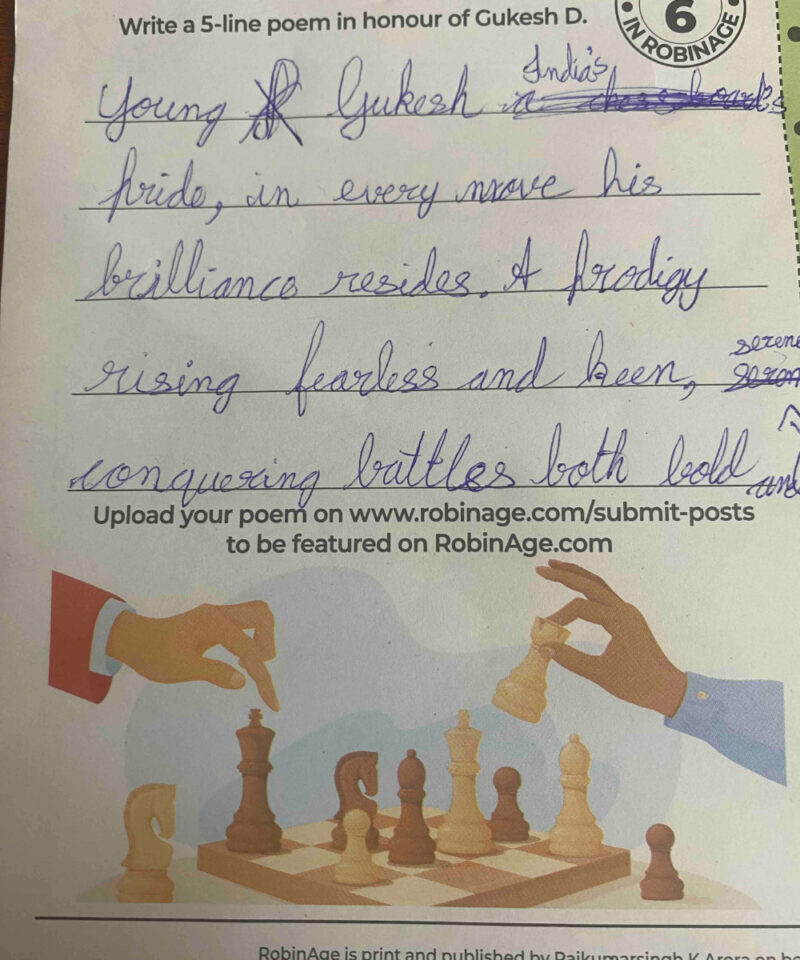 Write a 5-line poem in honour of Gukesh D.
6
IN ROBINAGE
Young Gukesh India's
pride, in every move his
brilliance resides. A prodigy
rising fearless and keen,
serene
conquering battles both bold and
Upload your poem on www.robinage.com/submit-posts
to be featured on RobinAge.com
RobinAge is print and published by Rajkumarsingh K Arora on